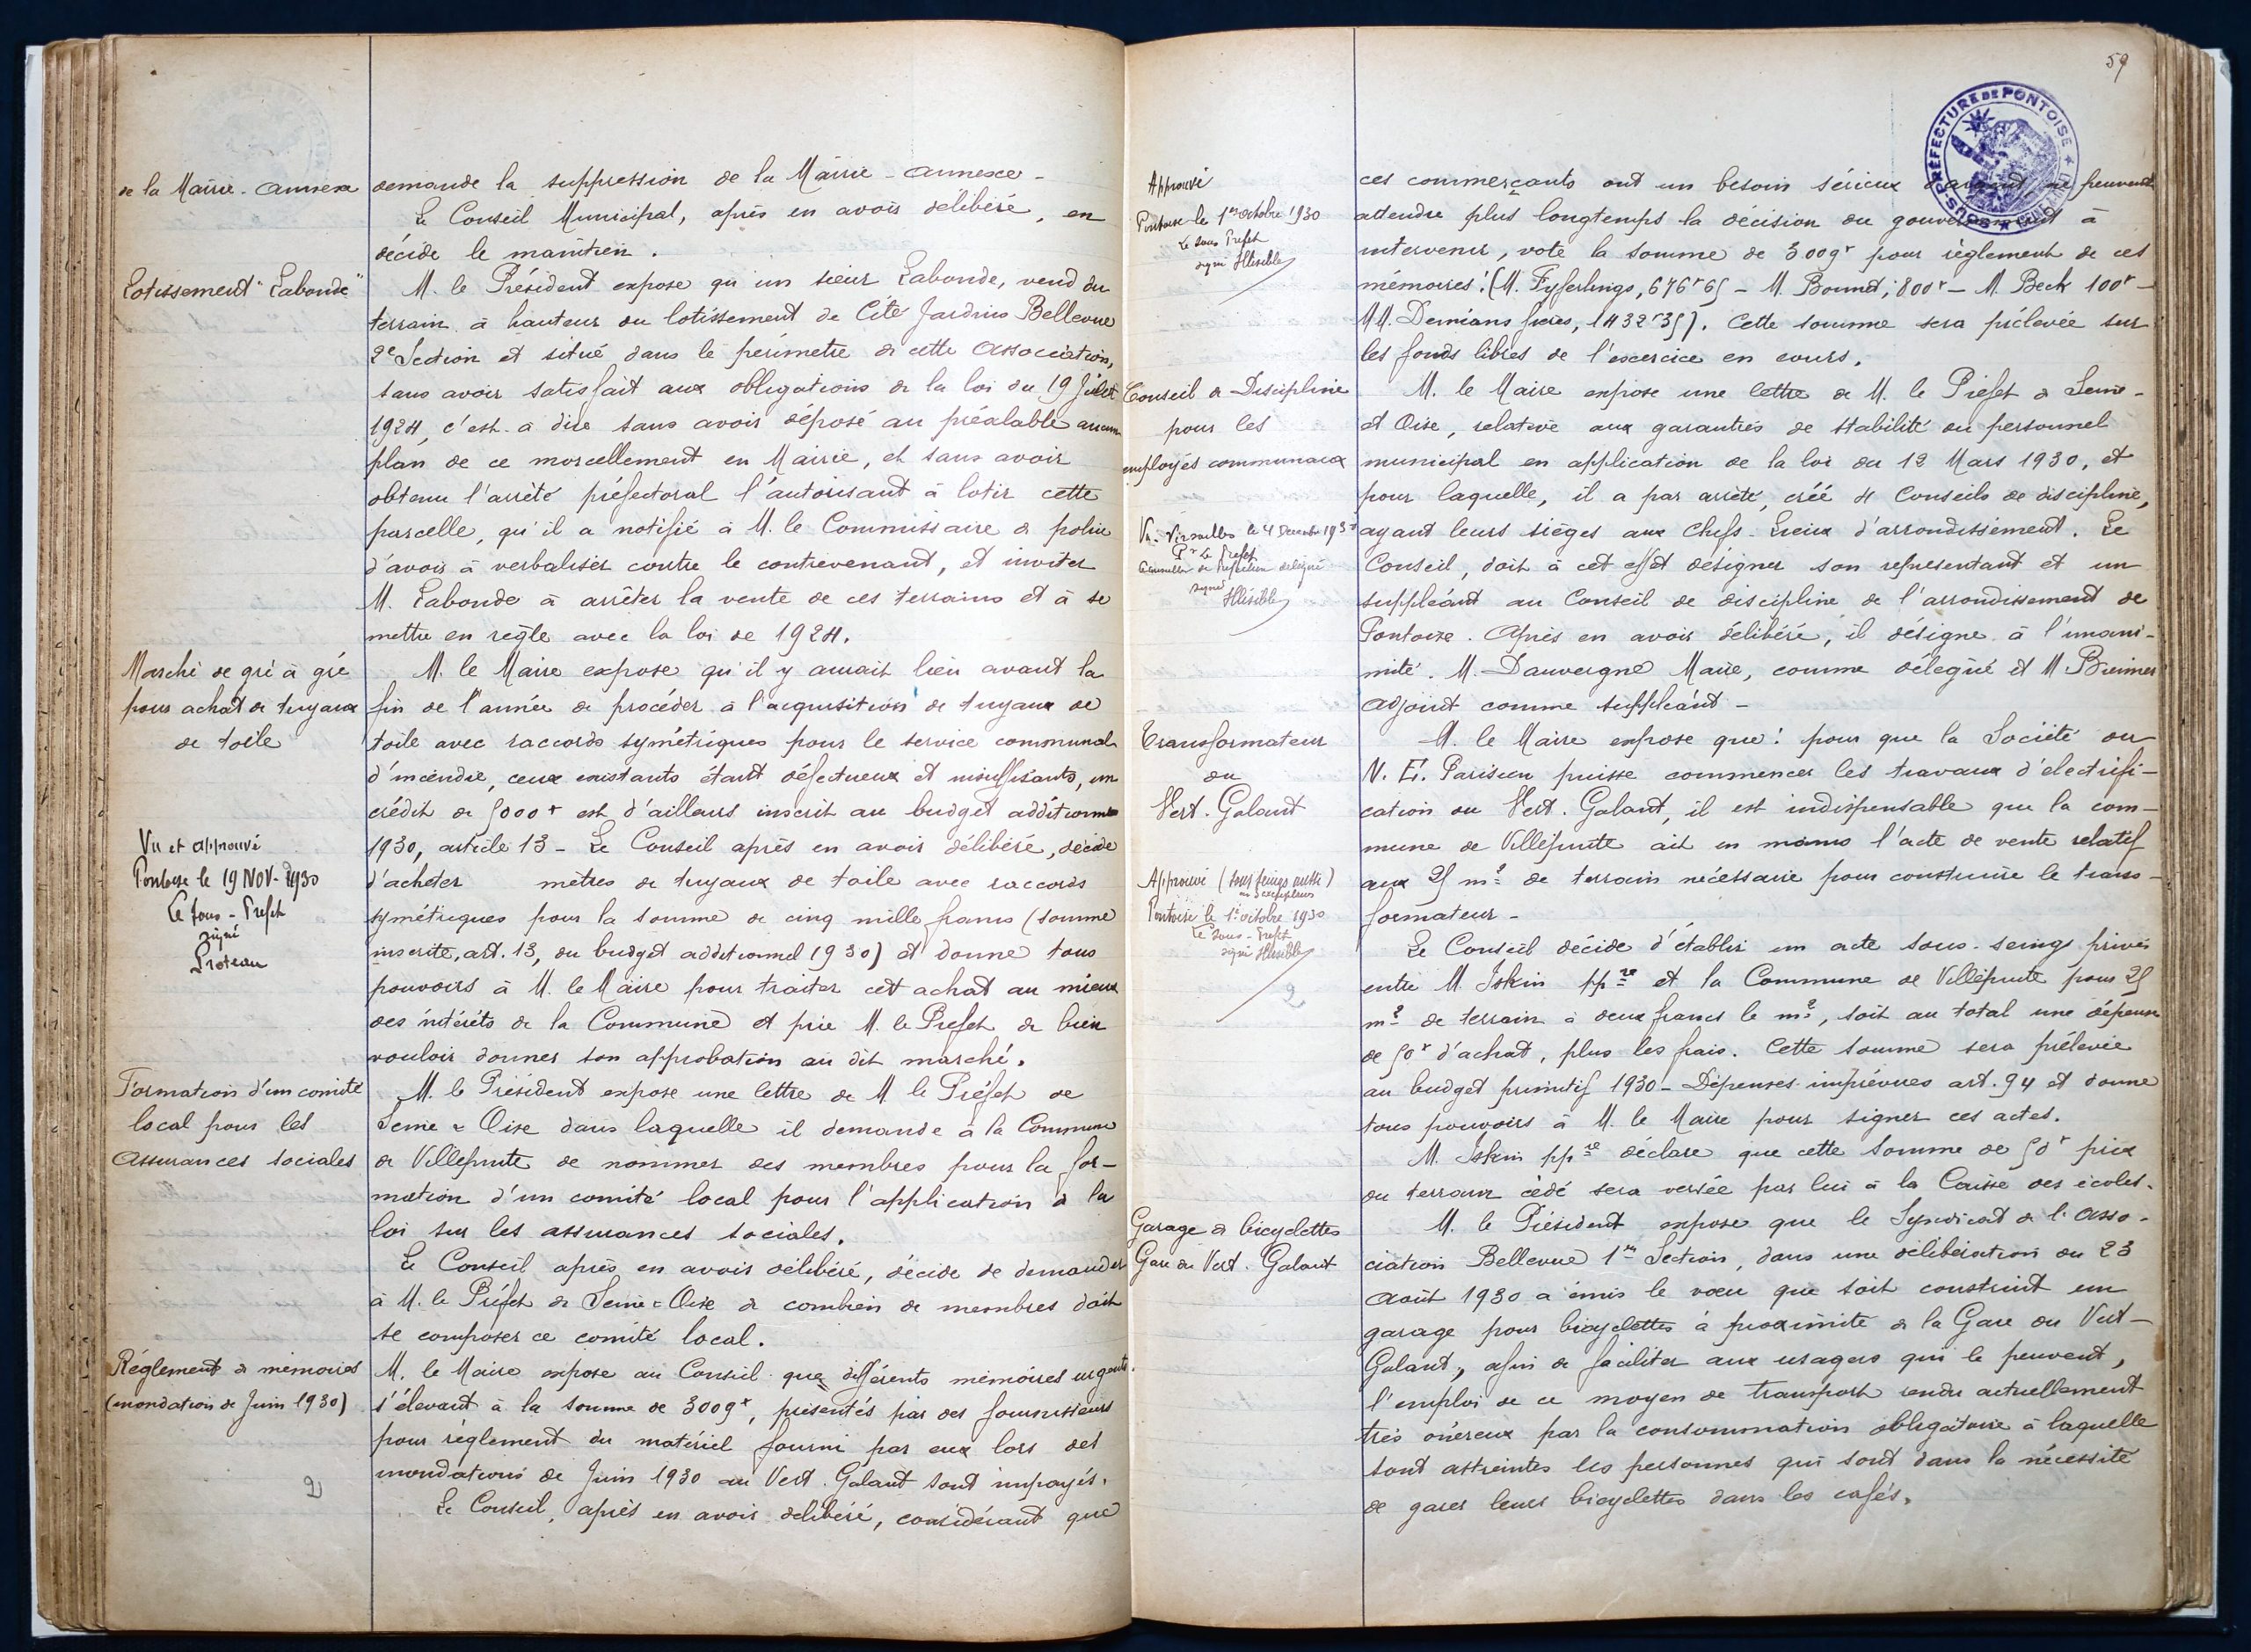 de la Mairie-annexe
demande la suppression de la Mairie-annexe-
Le Conseil Municipal, après en avoir délibéré, en
décide le maintien.
Lotissement "Labonde"
M. le Président expose qu'un sieur Labonde, vend du
terrain à hauteur du lotissement de Cité Jardins Bellevue
2e Section et situé dans le périmètre de cette Association,
sans avoir satisfait aux obligations de la loi du 19 Juillet
1924, c'est-à dire sans avoir déposé au préalable aucun
plan de ce morcellement en Mairie, et sans avoir
obtenu l'arrêté préfectoral l'autorisant à lotir cette
parcelle, qu'il a notifié à M. le Commissaire de police
d'avoir à verbaliser contre le contrevenant, et inviter
M. Labonde à arrêter la vente de ces terrains et à se
mettre en règle avec la loi de 1924.
Marché de gré à gré
pour achat de tuyaux
de toile
M. le Maire expose qu'il y aurait lieu avant la
fin de l'année de procéder à l'acquisition de tuyaux de
toile avec raccords symétriques pour le service communal
d'incendie, ceux existants étant défectueux et insuffisants, un
crédit de 5000 f est d'ailleurs inscrit au budget additionnel
1930, article 13 - Le Conseil après en avoir délibéré, décide
d'acheter mètres de tuyaux de toile avec raccords
symétriques pour la somme de cinq mille francs (somme
inscrite, art. 13, du budget additionnel 1930) et donne tous
pouvoirs à M. le Maire pour traiter cet achat au mieux
des intérêts de la Commune et prie M. le Préfet de bien
vouloir donner son approbation au dit marché.
Vu et approuvé
Pontoise le 19 NOV. 1930
Le Sous-Préfet
signé
Proteau
Formation d'un comité
local pour les
Assurances sociales
M. le Président expose une lettre de M. le Préfet de
Seine & Oise dans laquelle il demande à la Commune
de Villepinte de nommer des membres pour la for-
mation d'un comité local pour l'application de la
loi sur les assurances sociales.
Le Conseil après en avoir délibéré, décide de demander
à M. le Préfet de Seine & Oise de combien de membres doit
se composer ce comité local.
Réglement de mémoires
(inondation de Juin 1930)
M. le Maire expose au Conseil que différents mémoires urgents
s'élevant à la somme de 3009 f, présentés par des fournisseurs
pour règlement du matériel fourni par eux lors des
inondations de Juin 1930 au Vert Galant sont impayés.
Le Conseil, après en avoir délibéré, considérant que
2
59
SOUS-PRÉFECTURE DE PONTOISE
ces commerçants ont un besoin sérieux d'argent ne peuvent
attendre plus longtemps la décision du gouvernement à
intervenir, vote la somme de 3009 f pour règlement de ces
mémoires: (M. Fyferlings, 676 f 65 - M. Bounet, 800 f - M. Beck 100 f -
MM. Demians frères, 1432 f 35). Cette somme sera prélevée sur
les fonds libres de l'exercice en cours.
Approuvé
Pontoise le 1er octobre 1930
Le Sous Préfet
signé Illisible
Conseil de Discipline
pour les
employés communaux
M. le Maire expose une lettre de M. le Préfet de Seine-
et Oise, relative aux garanties de stabilité du personnel
municipal en application de la loi du 12 Mars 1930, et
pour laquelle, il a par arrêté, créé 4 Conseils de discipline,
ayant leurs sièges aux Chefs-Lieux d'arrondissement. Le
Conseil, doit à cet effet désigner son représentant et un
suppléant au Conseil de discipline de l'arrondissement de
Pontoise. Après en avoir délibéré, il désigne à l'unani-
mité. M. Dauvergne Maire, comme délégué et M. Breimer
adjoint comme suppléant -
Vu: Versailles le 4 Decembre 1930
Pr le Préfet
Le Conseiller de Préfecture délégué
signé
Illisible
Transformateur
du
Vert-Galant
M. le Maire expose que: pour que la Société du
N. E. Parisien puisse commencer les travaux d'électrifi-
cation du Vert-Galant, il est indispensable que la com-
mune de Villepinte ait en mains l'acte de vente relatif
aux 25 m2 de terrain nécessaire pour construire le trans-
formateur -
Le Conseil décide d'établir un acte sous-seings privés
entre M. Iskin ppre et la Commune de Villepinte pour 25
m2 de terrain à deux francs le m2, soit au total une dépense
de 50 f d'achat, plus les frais. Cette somme sera prélevée
au budget primitif 1930 - Dépenses imprévues art. 94 et donne
tous pouvoirs à M. le Maire pour signer ces actes.
M. Iskin ppre déclare que cette somme de 50 f prix
du terrain cédé sera versée par lui à la Caisse des écoles.
Approuvé (sous seings aussi)
en 3 exemplaires
Pontoise le 1er octobre 1930
Le Sous-Préfet
signé Illisible
2
Garage de bicyclettes
Gare du Vert-Galant
M. le Président expose que le Syndicat de l'Asso-
ciation Bellevue 1re Section, dans une délibération du 23
Août 1930 a émis le voeu que soit construit un
garage pour bicyclettes à proximité de la Gare du Vert-
Galant, afin de faciliter aux usagers qui le peuvent,
l'emploi de ce moyen de transport rendu actuellement
très onéreux par la consommation obligatoire à laquelle
sont astreintes les personnes qui sont dans la nécessité
de garer leurs bicyclettes dans les cafés.